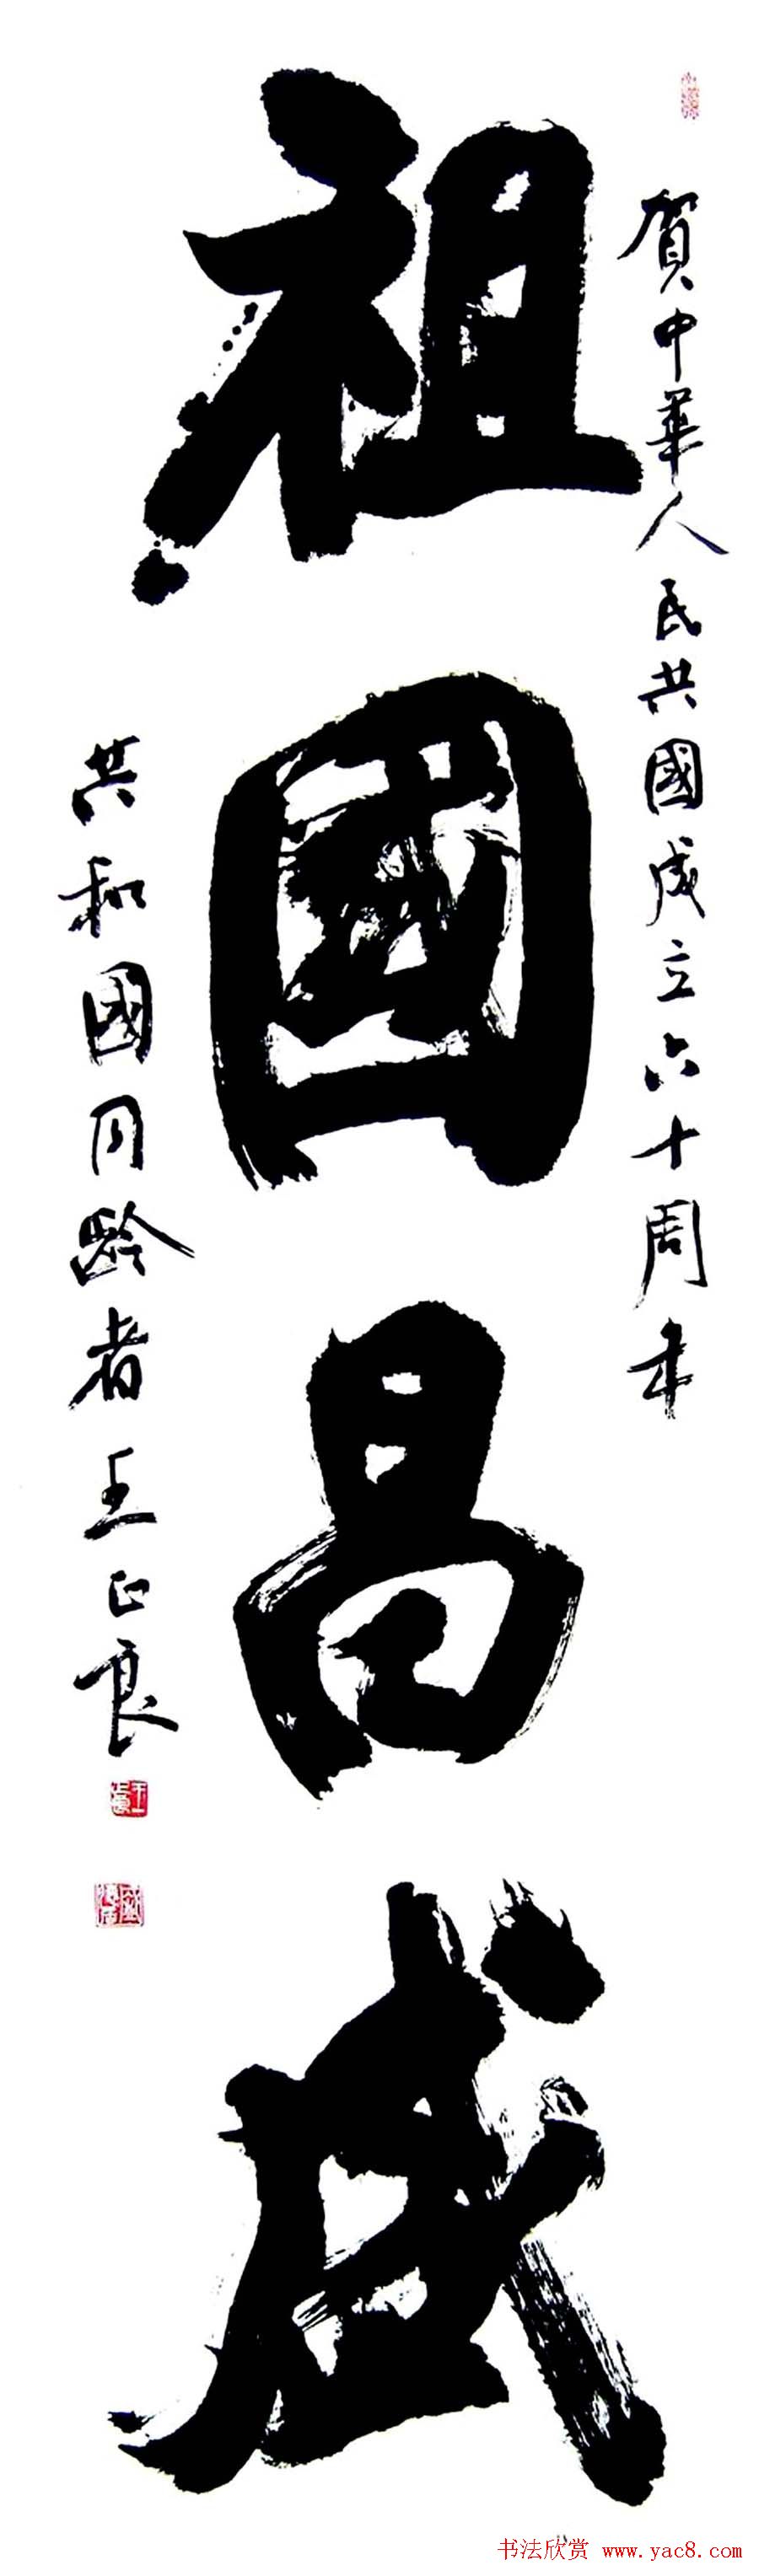 賀中華人民共國成立六十周年
祖國昌盛
共和國同齡者王正良
书法欣赏 www.yac8.com